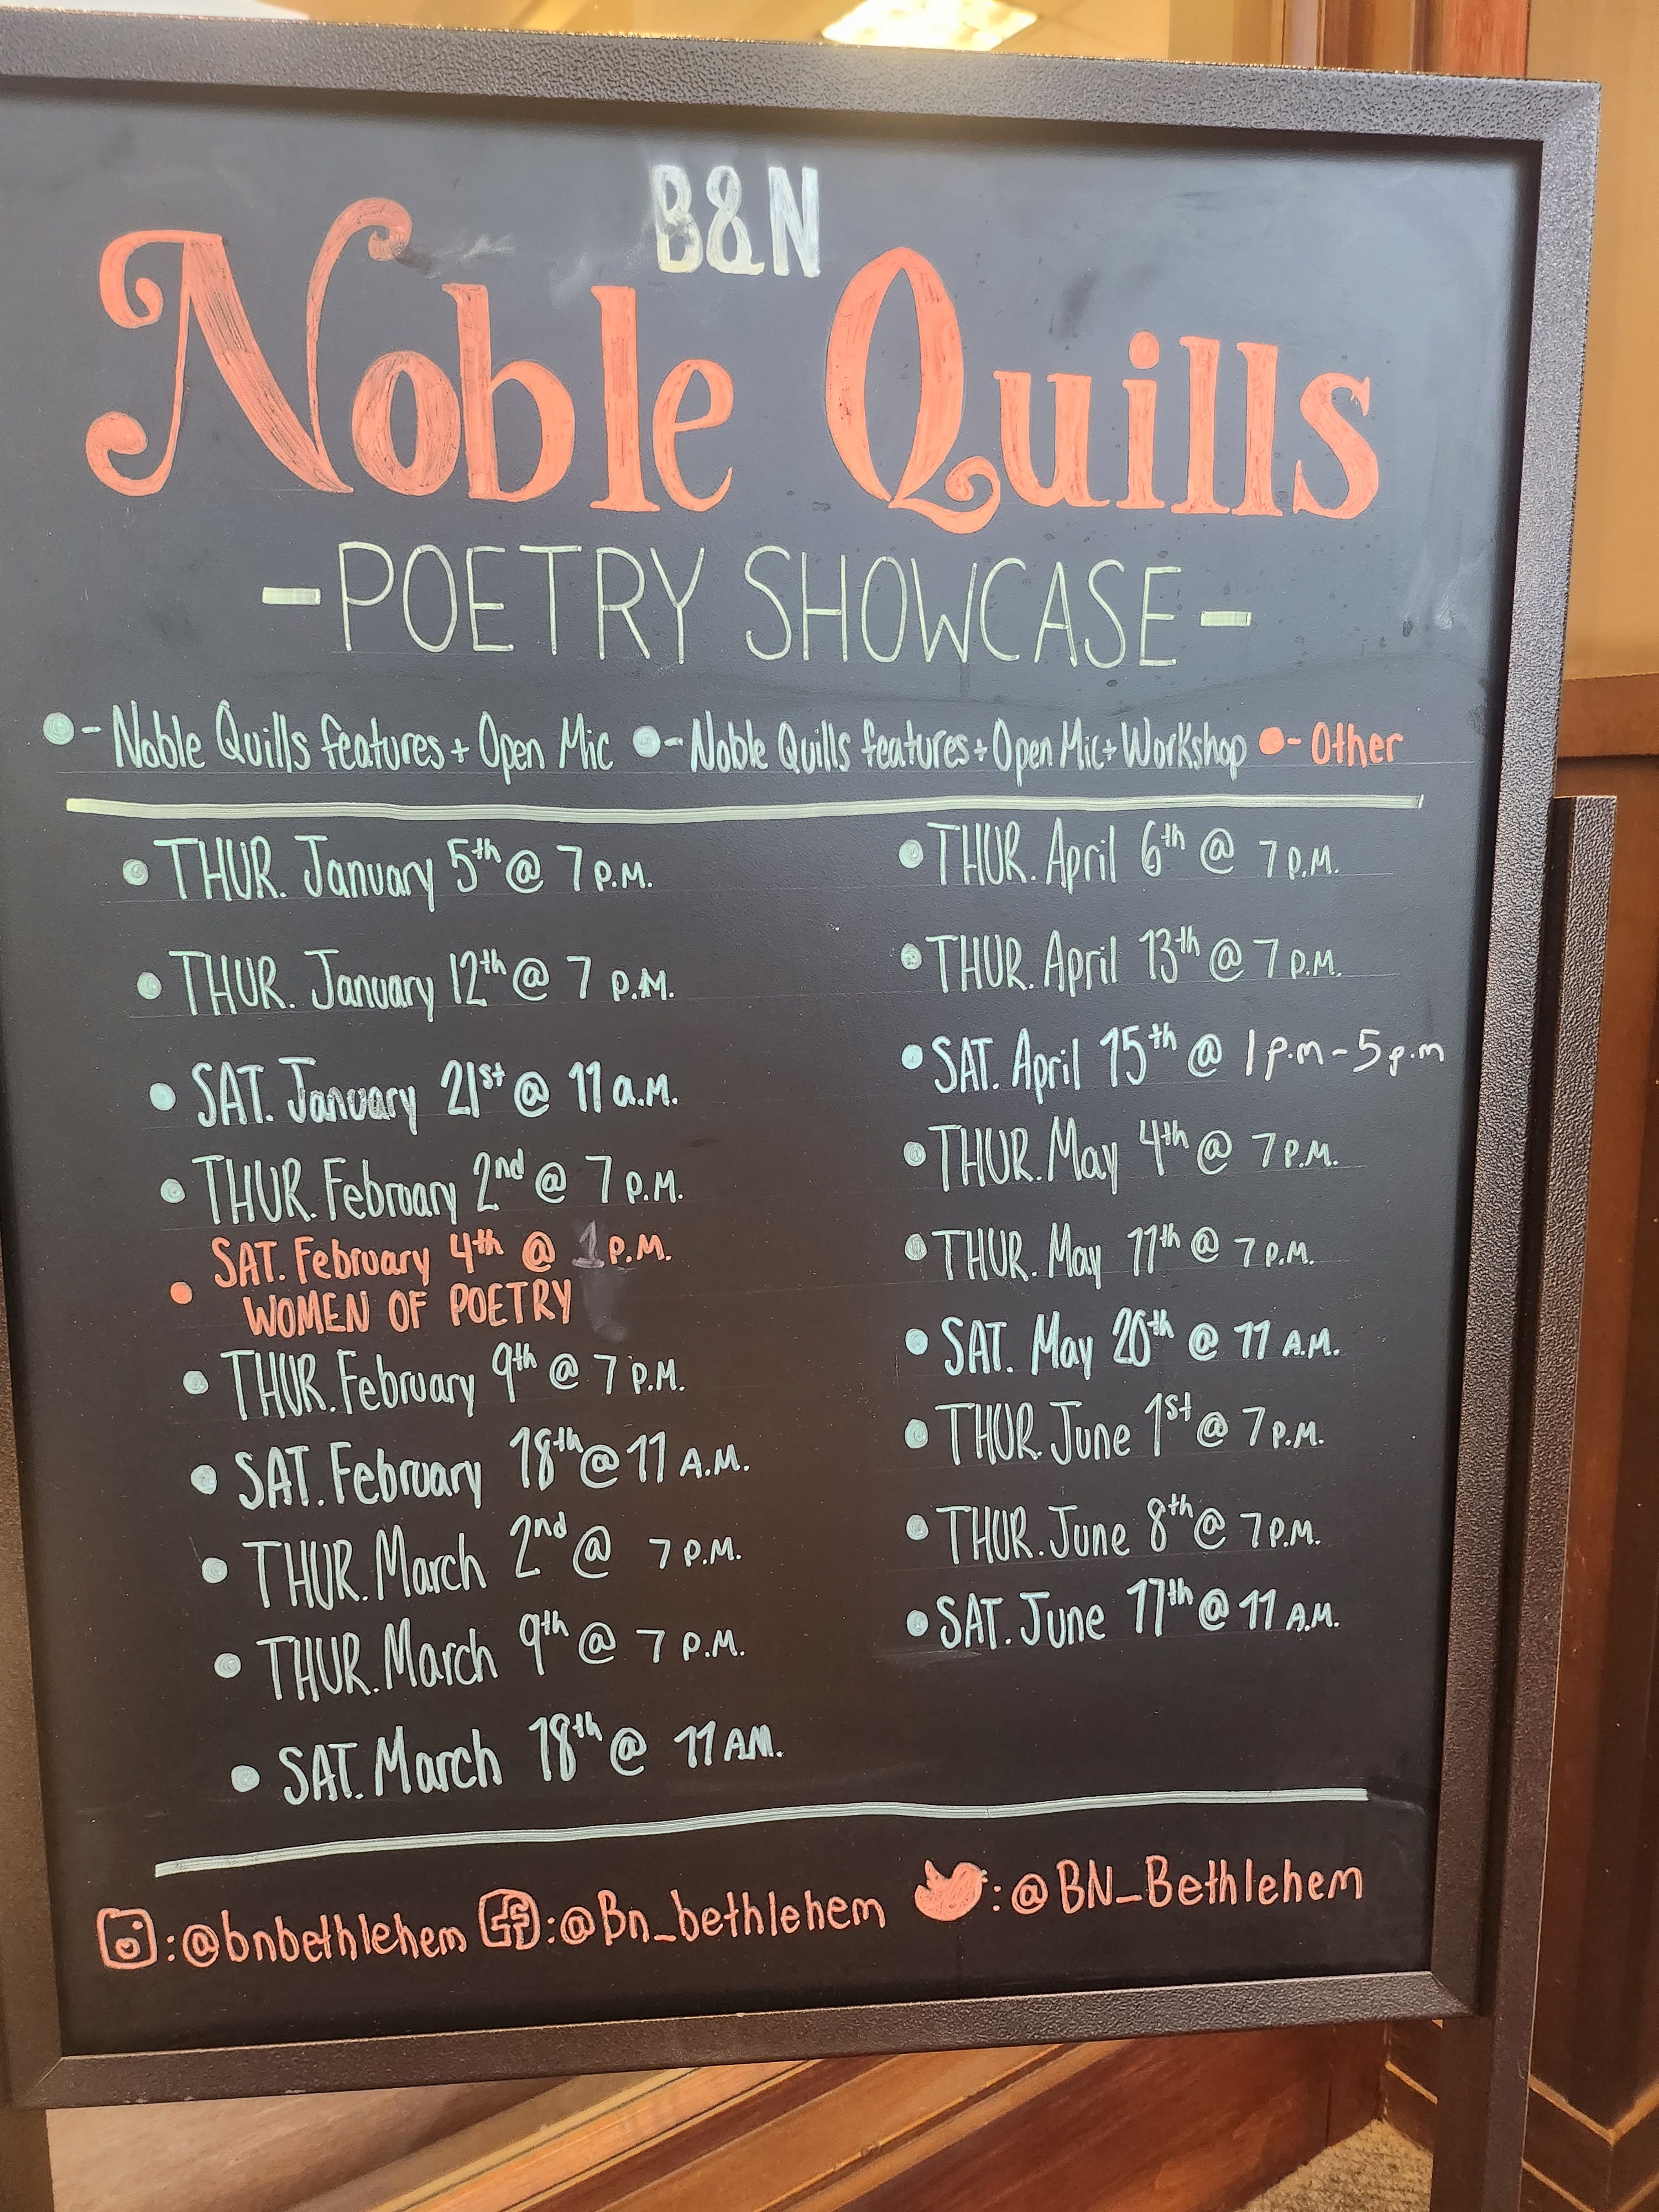 B&N
Noble Quills
-POETRY SHOWCASE-
- Noble Quills features + Open Mic - Noble Quills features + Open Mic + Workshop - Other
THUR. January 5th @ 7 P.M.
THUR. January 12th @ 7 P.M.
SAT. January 21st @ 11 a.M.
THUR. February 2nd @ 7 P.M.
SAT. February 4th @ 1 P.M.
WOMEN OF POETRY
THUR. February 9th @ 7 P.M.
SAT. February 18th @ 11 A.M.
THUR. March 2nd @ 7 P.M.
THUR. March 9th @ 7 P.M.
SAT. March 18th @ 11 AM.
THUR. April 6th @ 7 P.M.
THUR. April 13th @ 7 P.M.
SAT. April 15th @ 1 p.m - 5 p.m
THUR. May 4th @ 7 P.M.
THUR. May 11th @ 7 P.M.
SAT. May 20th @ 11 A.M.
THUR. June 1st @ 7 P.M.
THUR. June 8th @ 7 P.M.
SAT. June 17th @ 11 A.M.
: @bnbethlehem : @Bn_bethlehem : @BN_Bethlehem